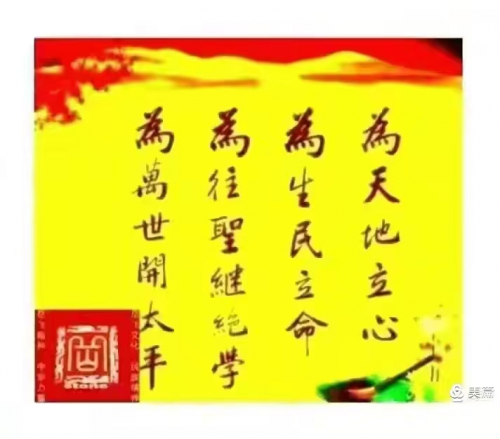 為天地立心
為生民立命
為往聖繼絕學
為萬世開太平
美篇